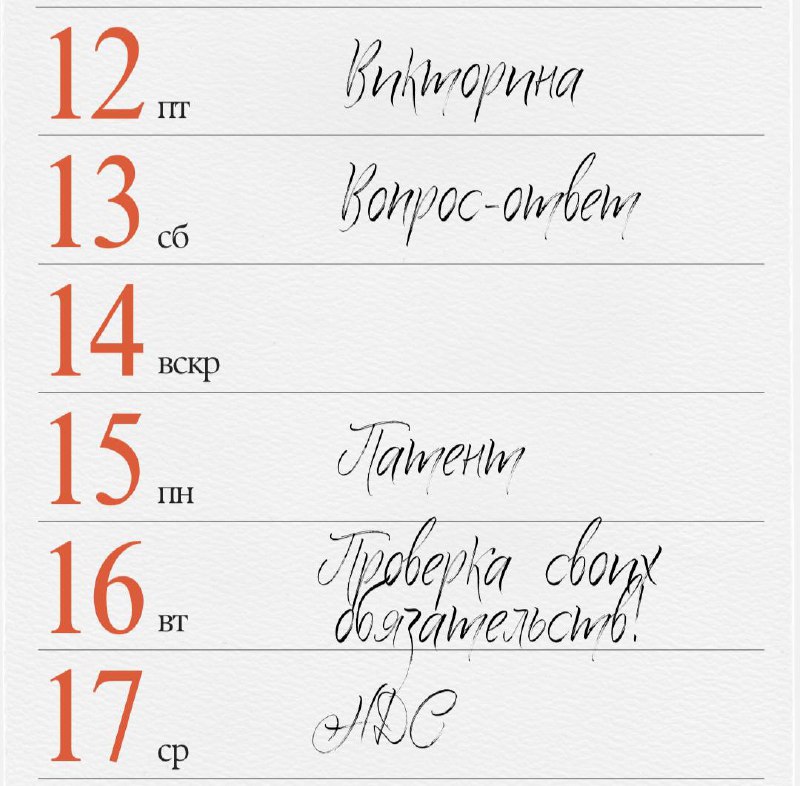 12 пт Викторина
13 сб Вопрос-ответ
14 вскр
15 пн Патент
16 вт Проверка своих
обязательств!
17 ср НДС